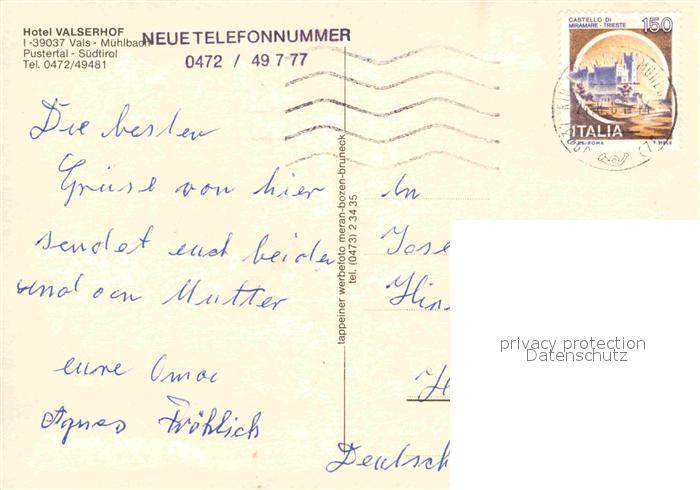 Hotel VALSERHOF
I -39037 Vals - Mühlbach
Pustertal - Südtirol
Tel. 0472/49481
NEUE TELEFONNUMMER
0472 / 49 7 77
CASTELLO DI
MIRAMARE - TRIESTE
150
ITALIA
I.P.Z.S.-ROMA
Die besten
Grüse von hier
sendet euch beiden
und an Mutter
eure Oma
Agnes Fröhlich
tappeiner werbefoto meran-bozen-bruneck
tel. (0473) 2 34 35
An
Jose
Hin
H
Deutsch
privacy protection
Datenschutz